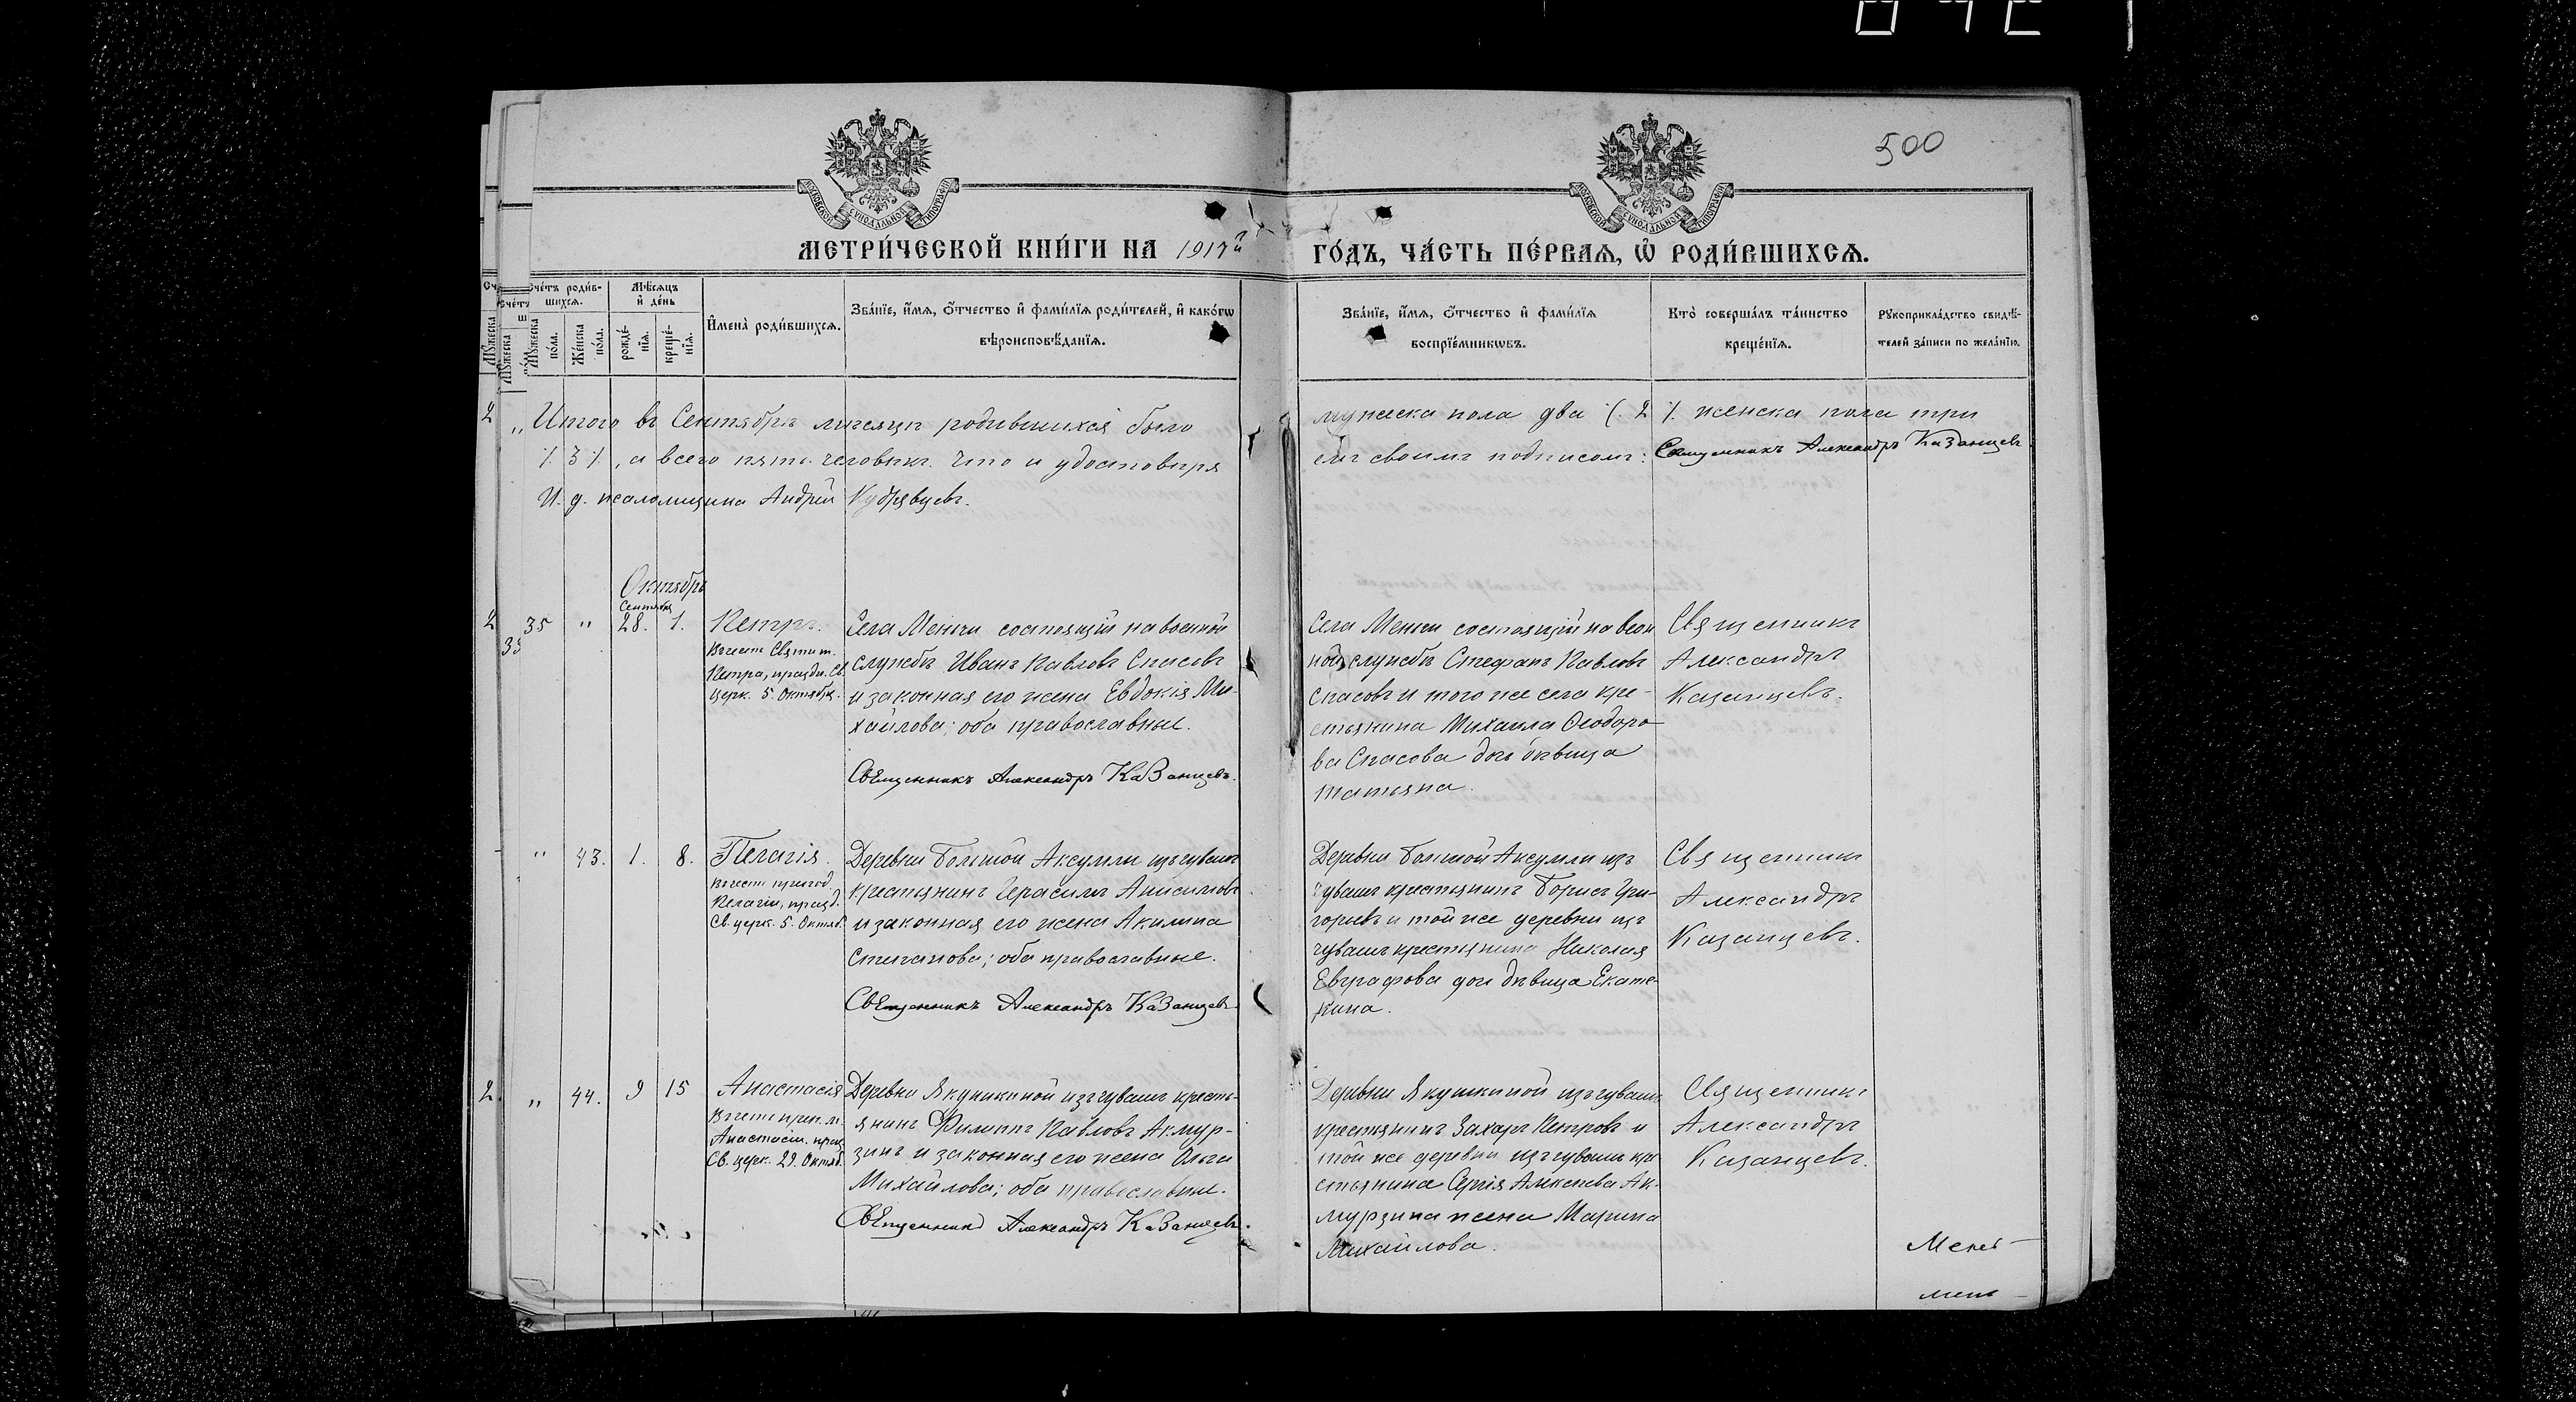 500
МЕТРИ́ЧЕСКОЙ КНИ́ГИ НА 1917й ГО́ДЪ, ЧА́СТЬ ПЕ́РВАѦ, Ѽ РОДИ́ВШИХСѦ.
Сче́тъ роди́в-шихсѧ.
Мꙋ́жеска по́ла.
Же́нска по́ла.
Мѣ́сѧцъ и҆ де́нь
рожде́-нїѧ.
креще́-нїѧ.
И҆мена̀ роди́вшихсѧ.
Зва́нїе, и҆́мѧ, ѻ҆́тчество и҆ фами́лїѧ роди́телей, и҆ како́гѡ
вѣроисповѣ́данїѧ.
Зва́нїе, и҆́мѧ, ѻ҆́тчество и҆ фами́лїѧ
воспрїе́мникѡвъ.
Кто̀ соверша́лъ та́инство
креще́нїѧ.
Рꙋкоприкла́дство свидѣ́-
телей за́писи по жела́нїю.
Итого въ Сентябрѣ мѣсяцѣ родившихся было мужеска пола два /. 2 /. женска пола три
/. 3 /., а всего пять человѣкъ. Что и удостовѣря емъ своимъ подписомъ: Священникъ Александръ Казанцевъ
И. д. псаломщика Андрей Кудрявцевъ.
Октябрь
Сентября
35 " 28. 1.
Петръ.
Въ честь Святит.
Петра, праздн. Св.
церк. 5. Октября.
Села Менчи состоящій на военной
службѣ Иванъ Павловъ Спасовъ
и законная его жена Евдокія Ми-
хайлова; оба православные.
Священникъ Александръ Казанцевъ.
Села Менчи состоящій на воен
ной службѣ Стефанъ Павловъ
Спасовъ и того же села кре-
стьянина Михаила Ѳеодоро
ва Спасова дочь дѣвица
Татьяна.
Священникъ
Александръ
Казанцевъ.
" 43. 1. 8.
Пелагія.
Въ честь препод.
Пелагіи, празд.
Св. церк. 5. Октяб.
Деревни Большой Аксумлы изъ чувашъ
крестьянинъ Герасимъ Анисимовъ
и законная его жена Акилина
Степанова; оба православные.
Священникъ Александръ Казанцевъ
Деревни Большой Аксумлы изъ
чувашъ крестьянинъ Борисъ Гри-
горьевъ и той же деревни изъ
чувашъ крестьянина Николая
Евграфова дочь дѣвица Екате-
рина.
Священникъ
Александръ
Казанцевъ.
" 44. 9 15
Анастасія
Въ честь преп. м.
Анастасіи. празд
Св. церк. 29. Октяб.
Деревни Якушкиной изъ чувашъ кресть-
янинъ Филиппъ Павловъ Акмур-
зинъ и законная его жена Ольга
Михайлова; оба православные.
Священникъ Александръ Казанцевъ.
Деревни Якушкиной изъ чувашъ
крестьянинъ Захаръ Петровъ и
той же деревни изъ чувашъ кре
стьянина Сергія Алексѣева Ак-
мурзина жена Марина
Михайлова.
Священникъ
Александръ
Казанцевъ.